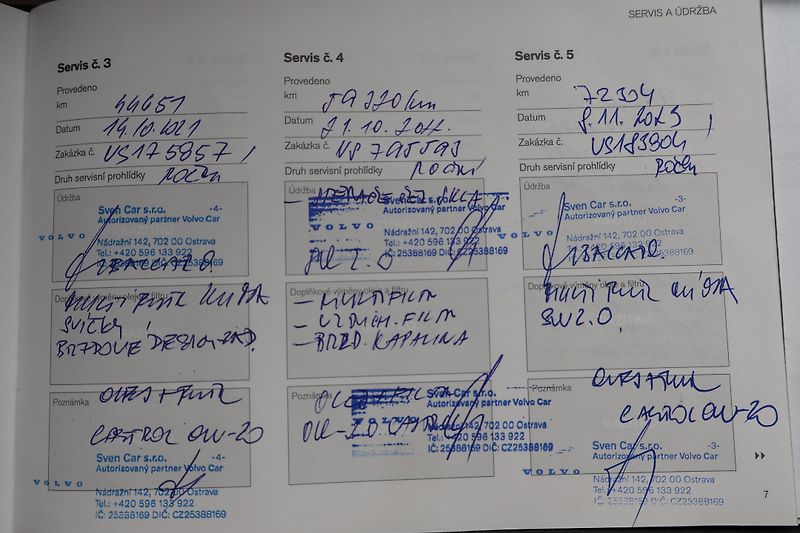 SERVIS A ÚDRŽBA
Servis č. 3
Provedeno
km 44651
Datum 14.10.2021
Zakázka č. VS175857,
Druh servisní prohlídky ROČNÍ
Údržba
Sven Car s.r.o. -4-
Autorizovaný partner Volvo Car
VOLVO
Nádražní 142, 702 00 Ostrava
Tel.: +420 596 133 922
IČ: 25388169 DIČ: CZ25388169
Doplňkové výměny oleje a filtru
SVÍČKY
Poznámka
OLEJ + FILTR
CASTROL 0W-20
Sven Car s.r.o. -4-
Autorizovaný partner Volvo Car
VOLVO
Nádražní 142, 702 00 Ostrava
Tel.: +420 596 133 922
IČ: 25388169 DIČ: CZ25388169
Servis č. 4
Provedeno
km
Datum 21.10.2022.
Zakázka č.
Druh servisní prohlídky ROČNÍ
Údržba
Sven Car s.r.o.
Autorizovaný partner Volvo Car
VOLVO
Nádražní 142, 702 00 Ostrava
Tel.: +420 596 133 922
IČ: 25388169 DIČ: CZ25388169
Doplňkové výměny oleje a filtru
- VZDUCH. FILTR
- BRZD. KAPALINA
Poznámka
Sven Car s.r.o.
Autorizovaný partner Volvo Car
Nádražní 142, 702 00 Ostrava
Tel.: +420 596 133 922
IČ: 25388169 DIČ: CZ25388169
Servis č. 5
Provedeno
km 72304
Datum 8.11.2023
Zakázka č. VS183904,
Druh servisní prohlídky ROČNÍ
Údržba
Sven Car s.r.o. -3-
Autorizovaný partner Volvo Car
VOLVO
Nádražní 142, 702 00 Ostrava
Tel.: +420 596 133 922
IČ: 25388169 DIČ: CZ25388169
Doplňkové výměny oleje a filtru
SW 2.0,
Poznámka
OLEJ + FILTR
CASTROL 0W-20
Sven Car s.r.o. -3-
Autorizovaný partner Volvo Car
VOLVO
Nádražní 142, 702 00 Ostrava
Tel.: +420 596 133 922
IČ: 25388169 DIČ: CZ25388169
7